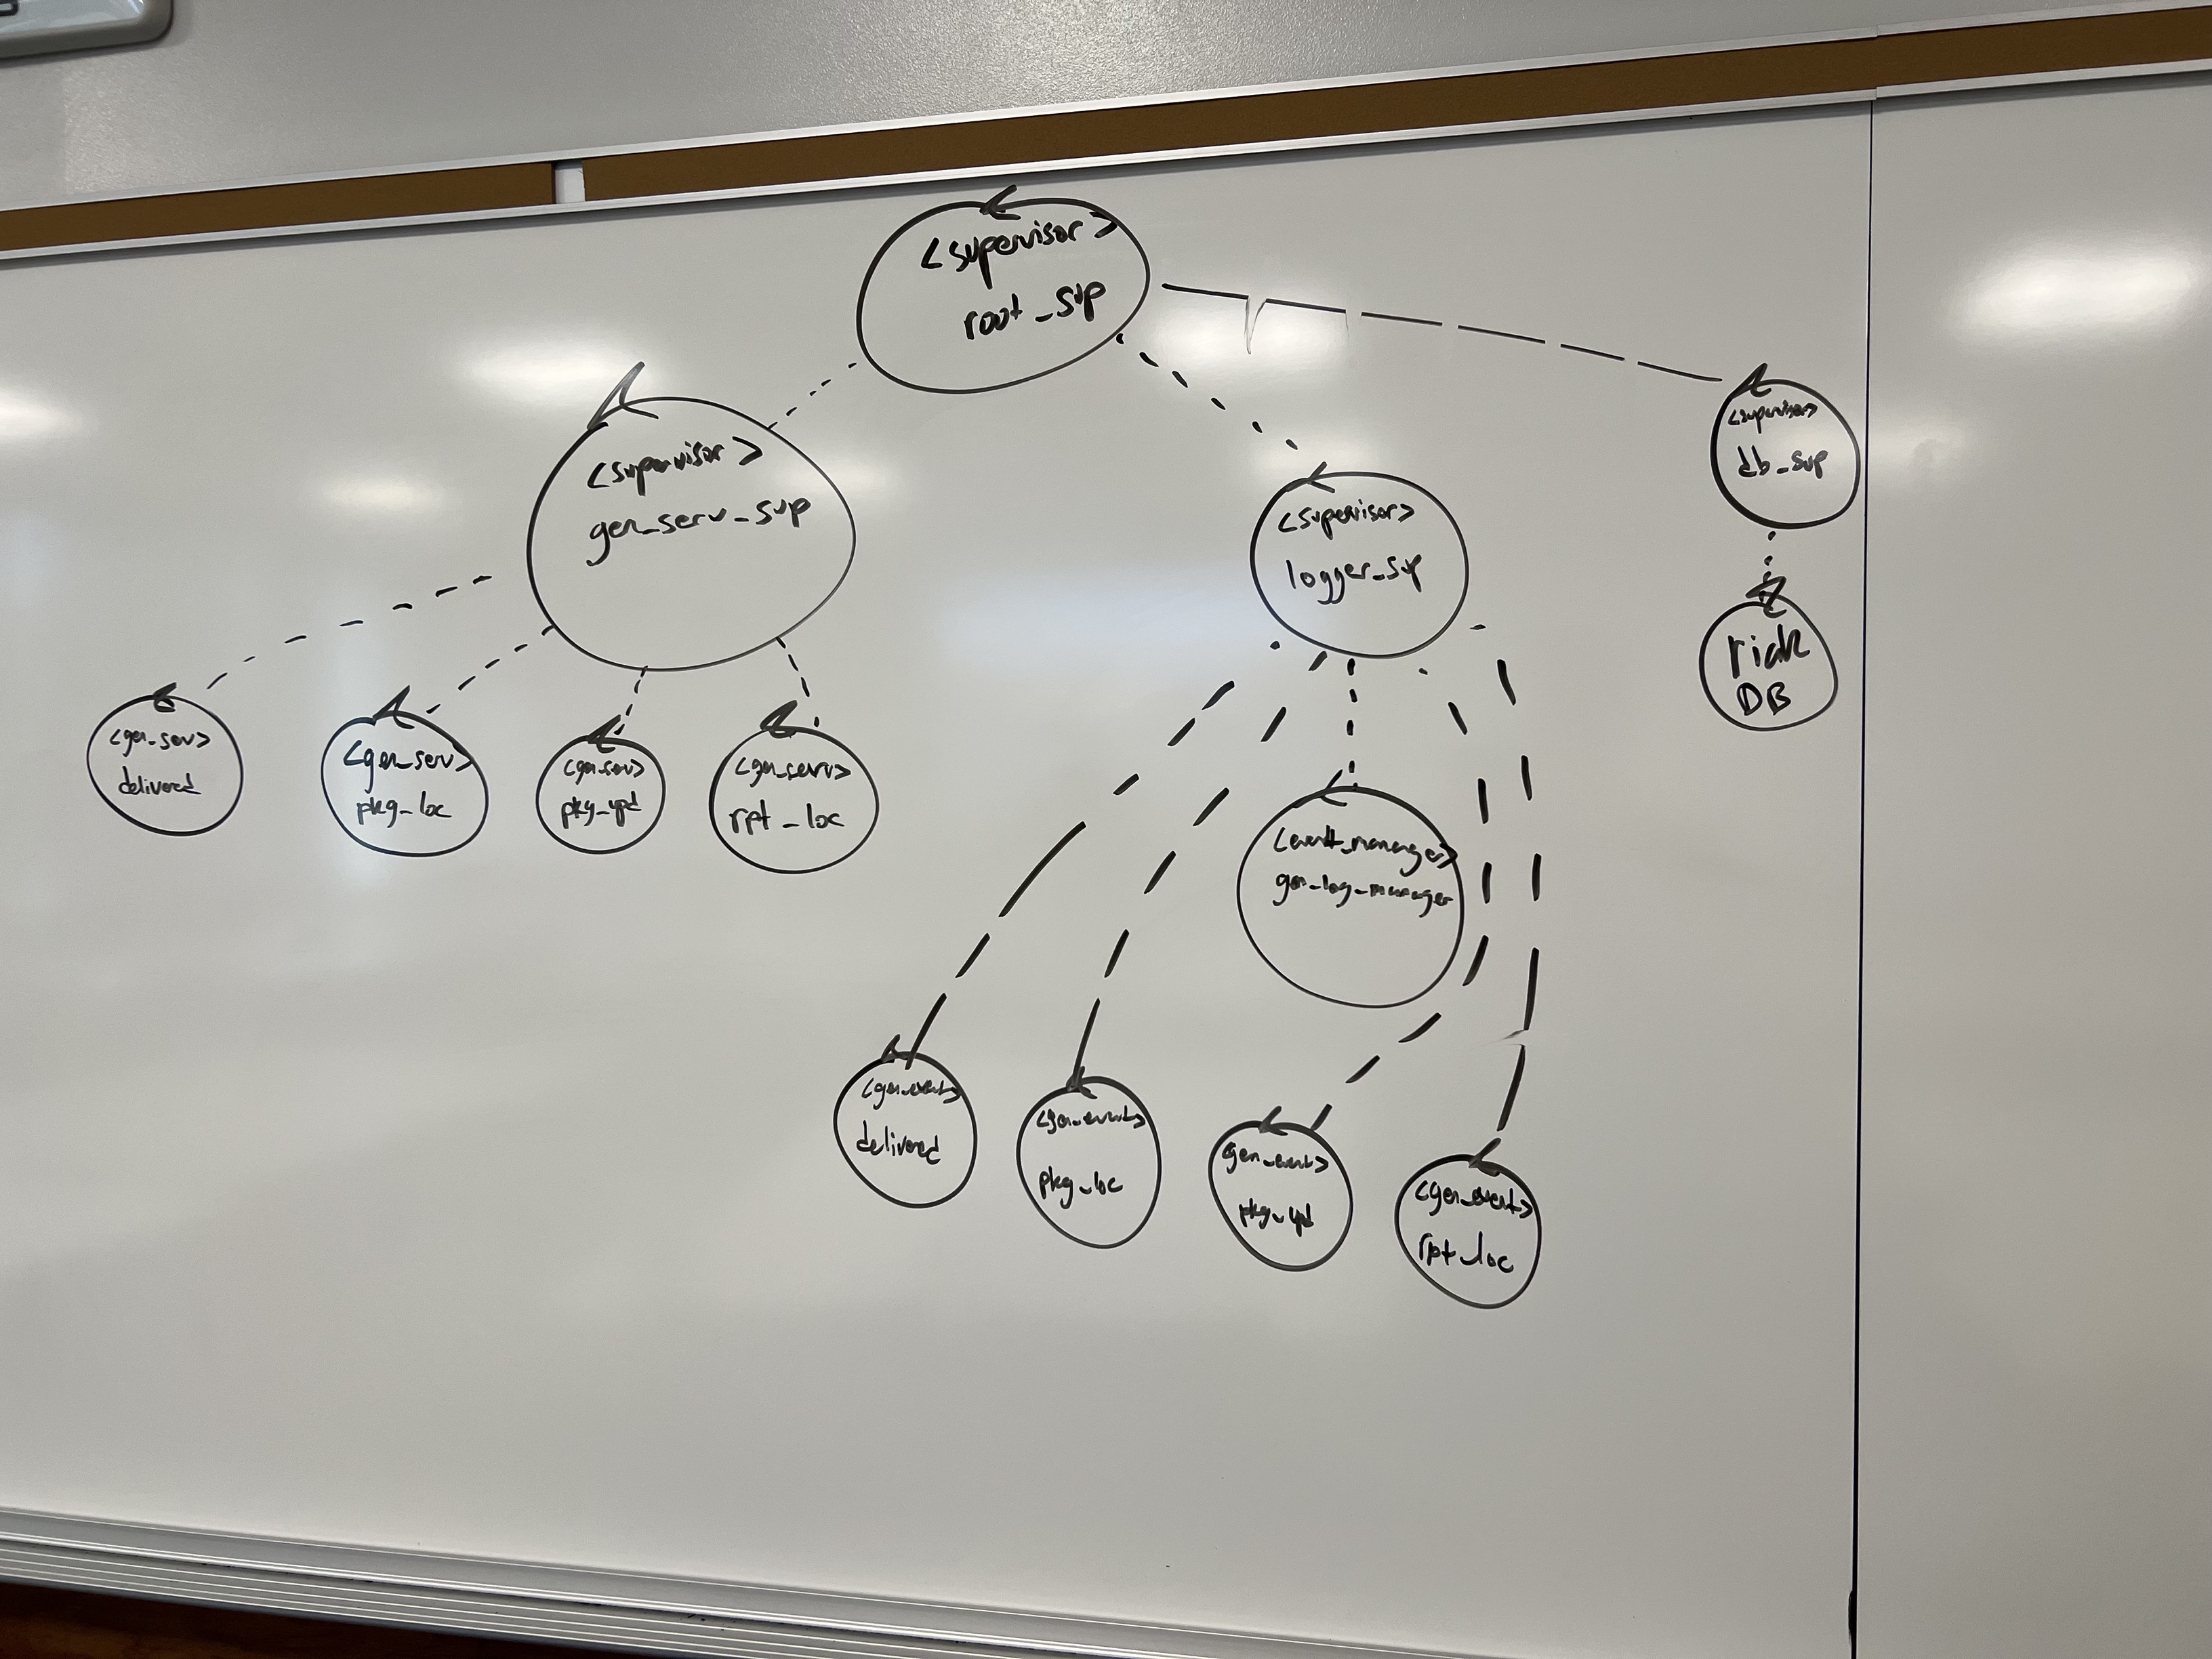 <supervisor>
root_sup
<supervisor>
gen_serv_sup
<supervisor>
logger_sup
<supervisor>
db_sup
riak
DB
<gen_serv>
delivered
<gen_serv>
pkg_loc
<gen_serv>
pkg_upd
<gen_serv>
rpt_loc
<event_manager>
gen_log_manager
<gen_event>
delivered
<gen_event>
pkg_loc
gen_event>
pkg_upd
<gen_event>
rpt_loc